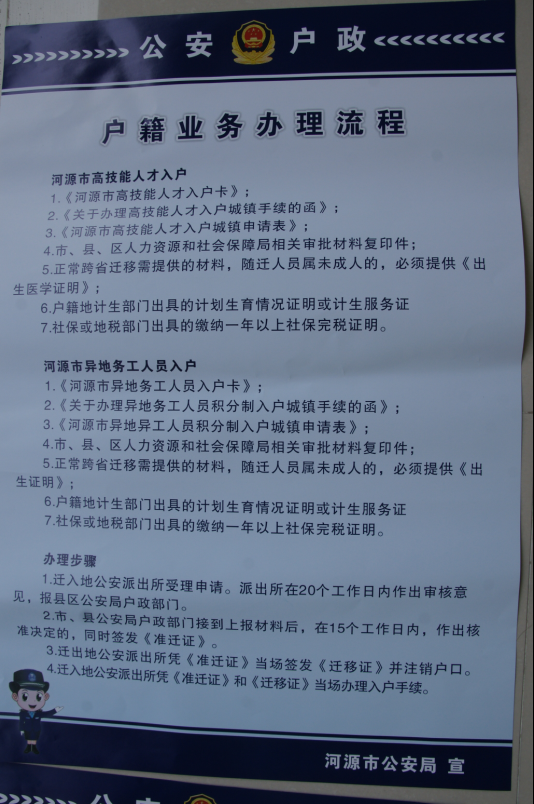 公安户政
户籍业务办理流程
河源市高技能人才入户
1.《河源市高技能人才入户卡》;
2.《关于办理高技能人才入户城镇手续的函》;
3.《河源市高技能人才入户城镇申请表》;
4.市、县、区人力资源和社会保障局相关审批材料复印件;
5.正常跨省迁移需提供的材料，随迁人员属未成人的，必须提供《出
生医学证明》;
6.户籍地计生部门出具的计划生育情况证明或计生服务证
7.社保或地税部门出具的缴纳一年以上社保完税证明。
河源市异地务工人员入户
1.《河源市异地务工人员入户卡》;
2.《关于办理异地务工人员积分制入户城镇手续的函》;
3.《河源市异地异工人员积分制入户城镇申请表》;
4.市、县、区人力资源和社会保障局相关审批材料复印件;
5.正常跨省迁移需提供的材料，随迁人员属未成人的，必须提供《出
生证明》;
6.户籍地计生部门出具的计划生育情况证明或计生服务证
7.社保或地税部门出具的缴纳一年以上社保完税证明。
办理步骤
1.迁入地公安派出所受理申请。派出所在20个工作日内作出审核意
见，报县区公安局户政部门。
2.市、县公安局户政部门接到上报材料后，在15个工作日内，作出核
准决定的，同时签发《准迁证》。
3.迁出地公安派出所凭《准迁证》当场签发《迁移证》并注销户口。
4.迁入地公安派出所凭《准迁证》和《迁移证》当场办理入户手续。
河源市公安局 宣